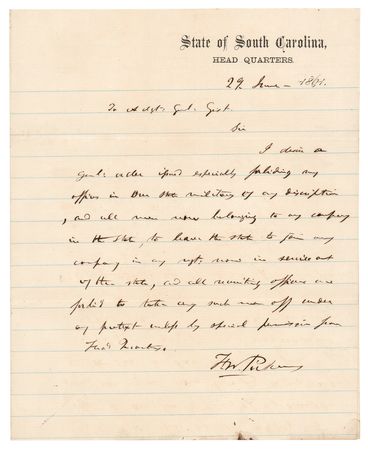 State of South Carolina,
HEAD QUARTERS.
29 June - 1861.
To Adgt. Genl. Gist
Sir
I desire a
Genl. order issued especially forbiding any
officer in our state military of any discription
, and all men now belonging to any company
in the state, to leave the state to join any
company in any regt. now in service out
of the state, and all recruiting officers are
forbid to take any such men off under
any pretext unless by special permission from
Head Quarters.
F W Pickens